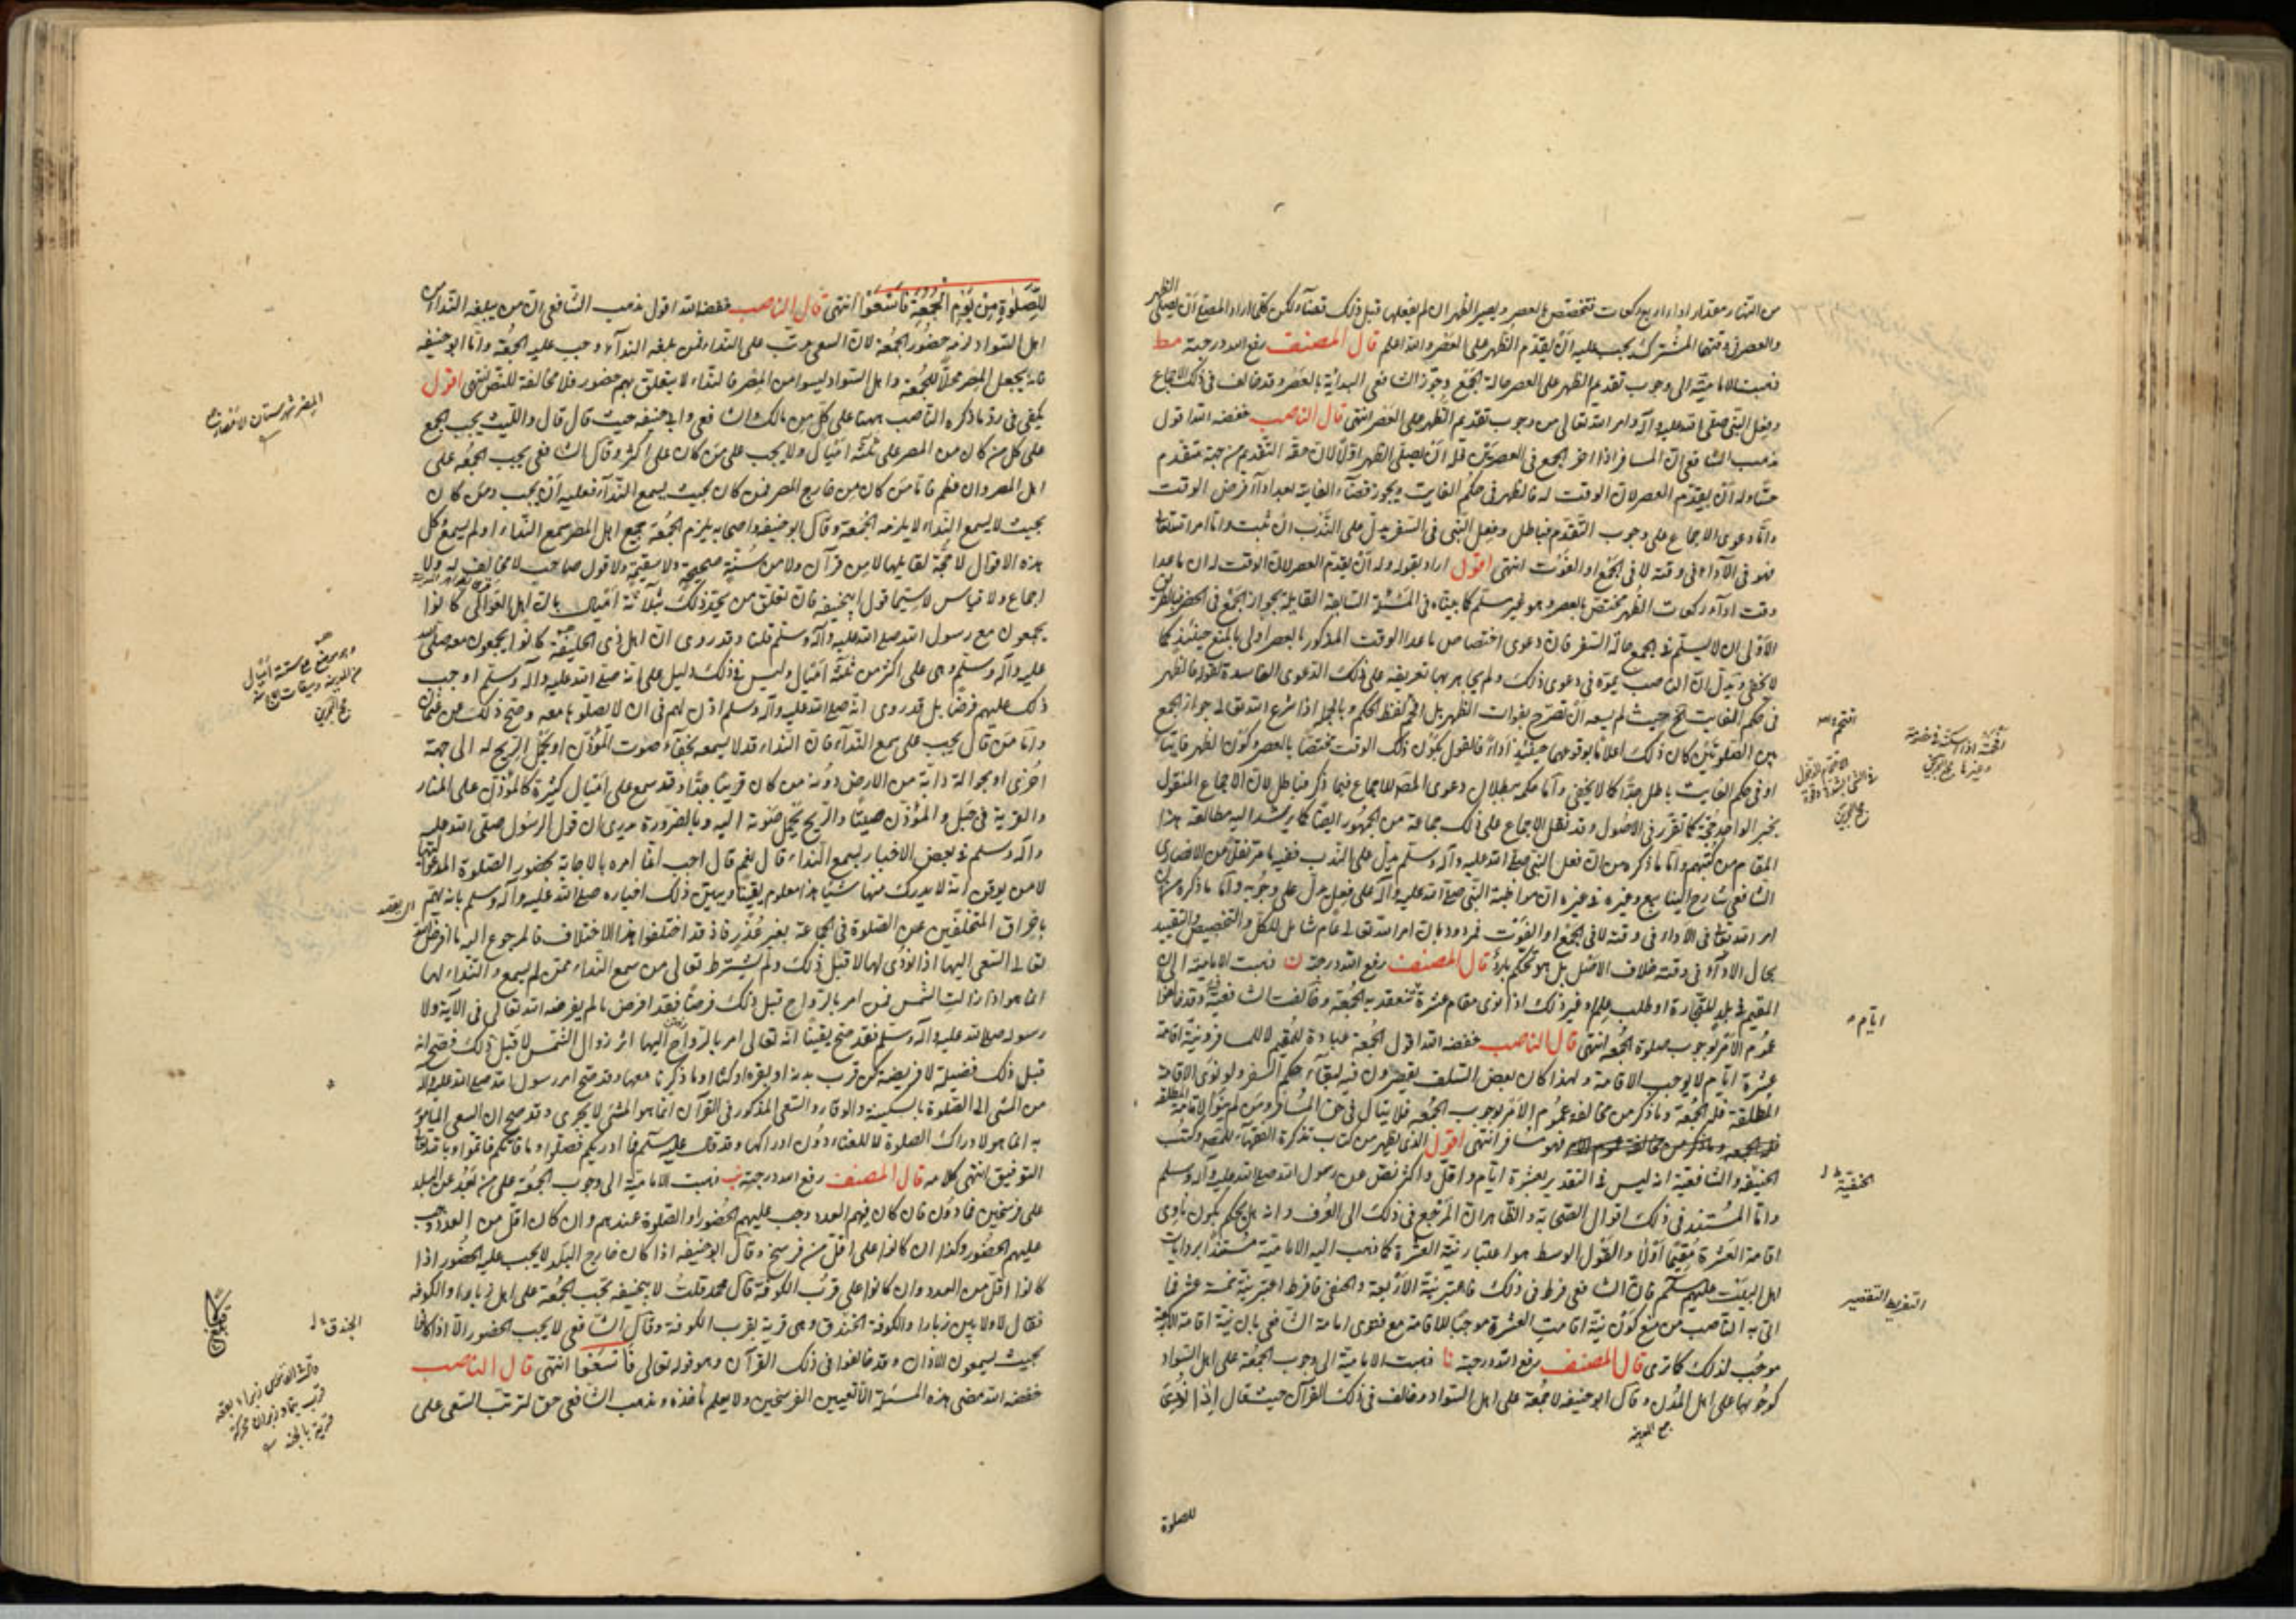 من النهار مقدار اداء اربع ركعات فتختص بالعصر ويصير الظهر ان لم يفعلها قبل ذلك قضاء ولكن كلما اراد المصلي ان يصلي الظهر
والعصر في وقتهما المشترك يجب عليه ان يقدّم الظهر على العصر والله اعلم قال المصنف رفع الله درجته مط
ذهبت الامامية الى وجوب تقديم الظهر على العصر حالة الجمع وجوّز الشافعي البداية بالعصر وقد خالف في ذلك الاجماع
وفعل النبي صلى الله عليه وآله وامر الله تعالى من وجوب تقديم الظهر على العصر انتهى قال الناصب خفضه الله اقول
مذهب الشافعي ان المسافر اذا اخر الجمع في العصرين فله ان يصلي الظهر اولا لان حقه التقديم من جهة متقدم
وله ان يقدّم العصر لان الوقت له فالظهر في حكم الفايت ويجوز قضاء الفايتة بعد اداء فرض الوقت
واما دعوى الاجماع على وجوب التقدم فباطل وفعل النبي في السفر يدل على الندب ان ثبت واما امر الله تعالى
فهو في الاداء في وقته لا في الجمع او الفوت انتهى اقول اراد بقوله وله ان يقدم العصر لان الوقت له ان ما عدا
وقت اداء ركعات الظهر مختص بالعصر وهو غير مسلم كما بيناه في المسئلة السابقة القايلة بجواز الجمع في الحضر
الاولى ان لا يسلم في الجمع حالة السفر فان دعوى اختصاص ما عدا الوقت المذكور بالعصر اولى بالمنع حينئذ كما
لا يخفى ويدل ان الناصب يموّه في دعوى ذلك ولم يجاهر بها تعريضه على ذلك الدعوى الفاسدة لقوله فالظهر
في حكم الفايت الخ حيث لم يسعه ان يصرح بفوات الظهر بل اقحم لفظ الحكم وبالجملة اذا شرع الله تعالى جواز الجمع
بين الصلوتين كان ذلك اعلاما بوقوعهما حينئذ اداء فالقول بكون ذلك الوقت مختصا بالعصر وكون الظهر فايتا
او في حكم الفايت باطل جدا كما لا يخفى واما حكمه ببطلان دعوى المصنف للاجماع فيما ذكر فباطل لان الاجماع المنقول
بخبر الواحد حجة كما تقرر في الاصول وقد نقل الاجماع على ذلك جماعة من الجمهور ايضا كما يرشد اليه مطالعة هذا
المقام من كتبهم واما ما ذكره من ان فعل النبي صلى الله عليه وآله وسلم يدل على الندب ففيه ما مر نقلا من الانصاري
الشافعي شارح الينابيع وغيره في غيره ان مواظبة النبي صلى الله عليه وآله على فعل يدل على وجوبه واما ما ذكره من ان
امر الله تعالى في الاداء في وقته لا في الجمع او الفوت فمردود بان امر الله تعالى عام شامل للكل والتخصيص والتقييد
بحال الاداء في وقته خلاف الاصل بل هو تحكم بارد قال المصنف رفع الله درجته ن ذهبت الامامية الى ان
المقيم في بلد للتجارة او طلب علم وغير ذلك اذا نوى مقام عشرة تنعقد به الجمعة وخالفت الشافعية فيه وقد خالفوا
عموم الامر بوجوب صلوة الجمعة انتهى قال الناصب خفضه الله اقول الجمعة عبادة للمقيم لا للمسافر ونية اقامة
عشرة ايام لا يوجب الاقامة ولهذا كان بعض السلف يقصرون فيه لبقاء حكم السفر ولو نوى الاقامة
المطلقة فله الجمعة وما ذكر من مخالفة عموم الامر بوجوب الجمعة فلا يتأتى في حق المسافر ومن لم ينو الاقامة المطلقة
فهو مسافر انتهى اقول الذي يظهر من كتاب تذكرة الفقهاء للمصنف وكتب
الحنيفة والشافعية انه ليس في التقدير بعشرة ايام واقل واكثر نص عن رسول الله صلى الله عليه وآله وسلم
واما المستند في ذلك اقوال الصحابة والظاهر ان المرجع في ذلك الى العرف وانه هل يحكم بكون ناوي
اقامة العشرة مقيما اولا والقول الوسط هو اعتبار نية العشرة كما ذهب اليه الامامية مستندا بروايات
اهل البيت عليهم السلام فان الشافعي فرط في ذلك فاعتبر نية الاربعة والحنفي فافرط اعتبر نية خمسة عشر فما
اتى به الناصب من منع كون نية اقامت العشرة موجبا للاقامة مع فتوى امامه الشافعي بان نية اقامة الاربعة
موجب لذلك كما ترى قال المصنف رفع الله درجته نا ذهبت الامامية الى وجوب الجمعة على اهل السواد
كوجوبها على اهل المدن وقال ابو حنيفة لا جمعة على اهل السواد وخالف في ذلك القرآن حيث قال اذا نودي
جمع المدينة
للصلوة
ايام
الحنفية
التفريط التقصير
للصلوة من يوم الجمعة فاسعوا انتهى قال الناصب خفضه الله اقول مذهب الشافعي ان من يبلغه النداء من
اهل السواد لزمه حضور الجمعة لان السعي مرتب على النداء فمن بلغه النداء وجب عليه الجمعة واما ابو حنيفة
فانه يجعل المصر محلا للجمعة واهل السواد ليسوا من المصر فالنداء لا يتعلق بهم حضور فلا مخالفة للنص انتهى اقول
يكفي في رد ما ذكره الناصب ههنا على كل من مالك والشافعي وابي حنيفة حيث قال قال والليث يجب الجمع
على كل من كان من المصر على ثلثة اميال ولا يجب على من كان على اكثر وقال الشافعي يجب الجمعة على
اهل المصر وان عظم فاما من كان من خارج المصر فمن كان بحيث يسمع النداء فعليه ان يجب ومن كان
بحيث لا يسمع النداء لا يلزمه الجمعة وقال ابو حنيفة واصحابه يلزم الجمعة جميع اهل المصر سمع النداء او لم يسمع كل
هذه الاقوال لا حجة لقايليها لا من قرآن ولا من سنة صحيحة ولا سقيمة ولا قول صاحب لا مخالف له ولا
اجماع ولا قياس لا سيما قول ابيحنيفة فان تعلق من يحد ذلك بثلاثة اميال بان اهل العوالي كانوا
يجمعون مع رسول الله صلى الله عليه وآله وسلم قلنا وقد روى ان اهل ذي الحليفة كانوا يجمعون معه صلى الله
عليه وآله وسلم وهي على اكثر من ثلثة اميال وليس في ذلك دليل على انه صلى الله عليه وآله وسلم اوجب
ذلك عليهم فرضا بل قد روى انه صلى الله عليه وآله وسلم اذن لهم في ان لا يصلوها معه وصح ذلك عن عثمان
واما من قال يجب على سمع النداء فان النداء قد لا يسمعه لخفاء صوت المؤذن او لحمل الريح له الى جهة
اخرى او لحوالة رابية من الارض دونه من كان قريبا جدا وقد سمع على اميال كثيرة كالمؤذن على المنار
والقرية في جبل والمؤذن صيتا والريح يحمل صوته اليه وبالضرورة يدري ان قول الرسول صلى الله عليه
وآله وسلم في بعض الاخبار يسمع النداء قال نعم قال اجب انما امره بالاجابة لحضور الصلوة المدعو اليها
لا من يوقن انه لا يدرك منها شيئا هذا معلوم يقينا ويبين ذلك اخباره صلى الله عليه وآله وسلم بانه يهم
باحراق المتخلفين عن الصلوة في الجماعة بغير عذر فاذ قد اختلفوا هذا الاختلاف فالمرجوع اليه ما افترض الله
تعالى السعي اليها اذا نودي لها لا قبل ذلك ولم يشترط تعالى من سمع النداء ممن لم يسمع والنداء لها
انما هو اذا زالت الشمس فمن امر بالرواح قبل ذلك فرضا فقد افرض ما لم يفرضه الله تعالى في الآية ولا
رسوله صلى الله عليه وآله وسلم فقد صح يقينا انه تعالى امر بالرواح اليها اثر زوال الشمس لا قبل ذلك فصح انه
قبل ذلك فضيلة لا فريضة كمن قرب بدنة او بقرة او كبشا وما ذكرنا معها وقد صح امر رسول الله صلى الله عليه وآله
من المشي الى الصلوة بالسكينة والوقار والسعي المذكور في القرآن انما هو المشي لا الجري وقد صح ان السعي المأمور
به انما هو لادراك الصلوة لا للعناء دون ادراكها وقد قال عليه السلم فما ادركتم فصلوا وما فاتكم فاتموا وبالله
التوفيق انتهى كلامه قال المصنف رفع الله درجته نب ذهبت الامامية الى وجوب الجمعة على من بعد عن البلد
على فرسخين فما دون فان كان فيهم العدد وجب عليهم الحضور او الصلوة عندهم وان كان اقل من العدد وجب
عليهم الحضور وكذا ان كانوا على اقل من فرسخ وقال ابو حنيفة اذا كان خارج البلد لا يجب عليه الحضور اذا
كانوا اقل من العدد وان كانوا على قرب الكوفة قال محمد قلت لابيحنيفة تجب الجمعة على اهل زبارا والكوفة
فقال لا ولا بين زبارا والكوفة الخندق وهي قرية بقرب الكوفة وقال الشافعي لا يجب الحضور الا اذا كانوا
بحيث يسمعون الاذان وقد خالفوا في ذلك القرآن وهو قوله تعالى فاسعوا انتهى قال الناصب
خفضه الله مضى هذه المسئلة الا تعيين الفرسخين ولا يعلم مأخذه ومذهب الشافعي حق لترتب السعي على
الخندق